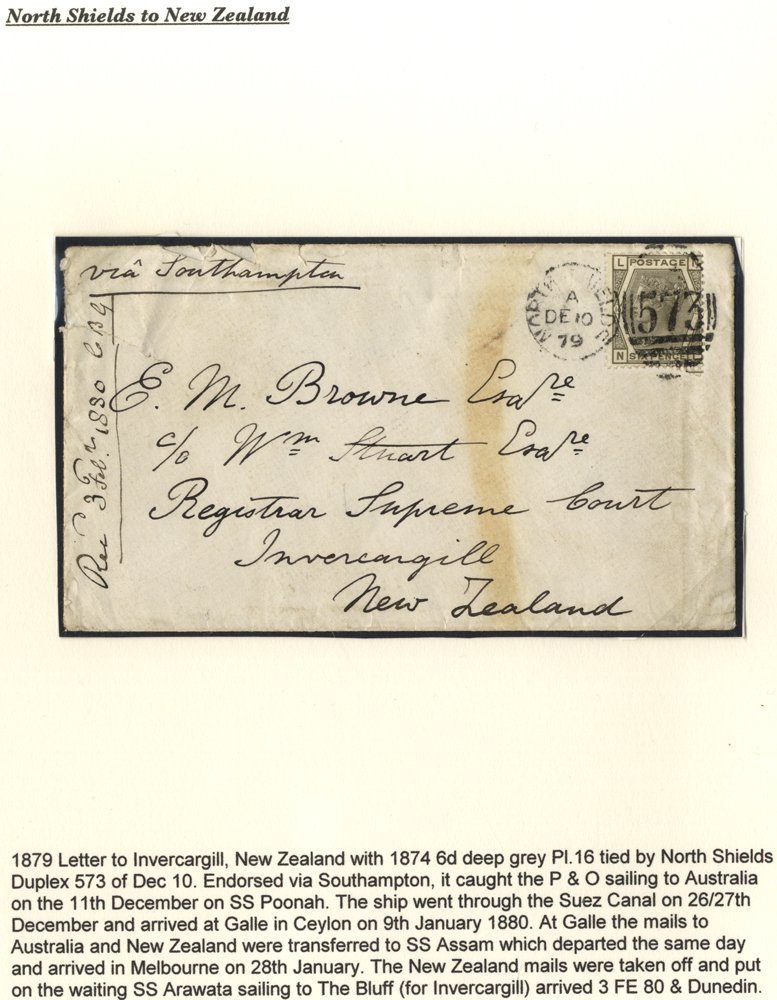 North Shields to New Zealand
viâ Southampton
Rec'd 3 Feb. 1880
NORTH SHIELDS
A
DE 10
79
L POSTAGE
573
N SIX PENCE L
E. M. Browne Esqre
c/o Wm Stuart Esqre
Registrar Supreme Court
Invercargill
New Zealand
1879 Letter to Invercargill, New Zealand with 1874 6d deep grey Pl.16 tied by North Shields
Duplex 573 of Dec 10. Endorsed via Southampton, it caught the P & O sailing to Australia
on the 11th December on SS Poonah. The ship went through the Suez Canal on 26/27th
December and arrived at Galle in Ceylon on 9th January 1880. At Galle the mails to
Australia and New Zealand were transferred to SS Assam which departed the same day
and arrived in Melbourne on 28th January. The New Zealand mails were taken off and put
on the waiting SS Arawata sailing to The Bluff (for Invercargill) arrived 3 FE 80 & Dunedin.